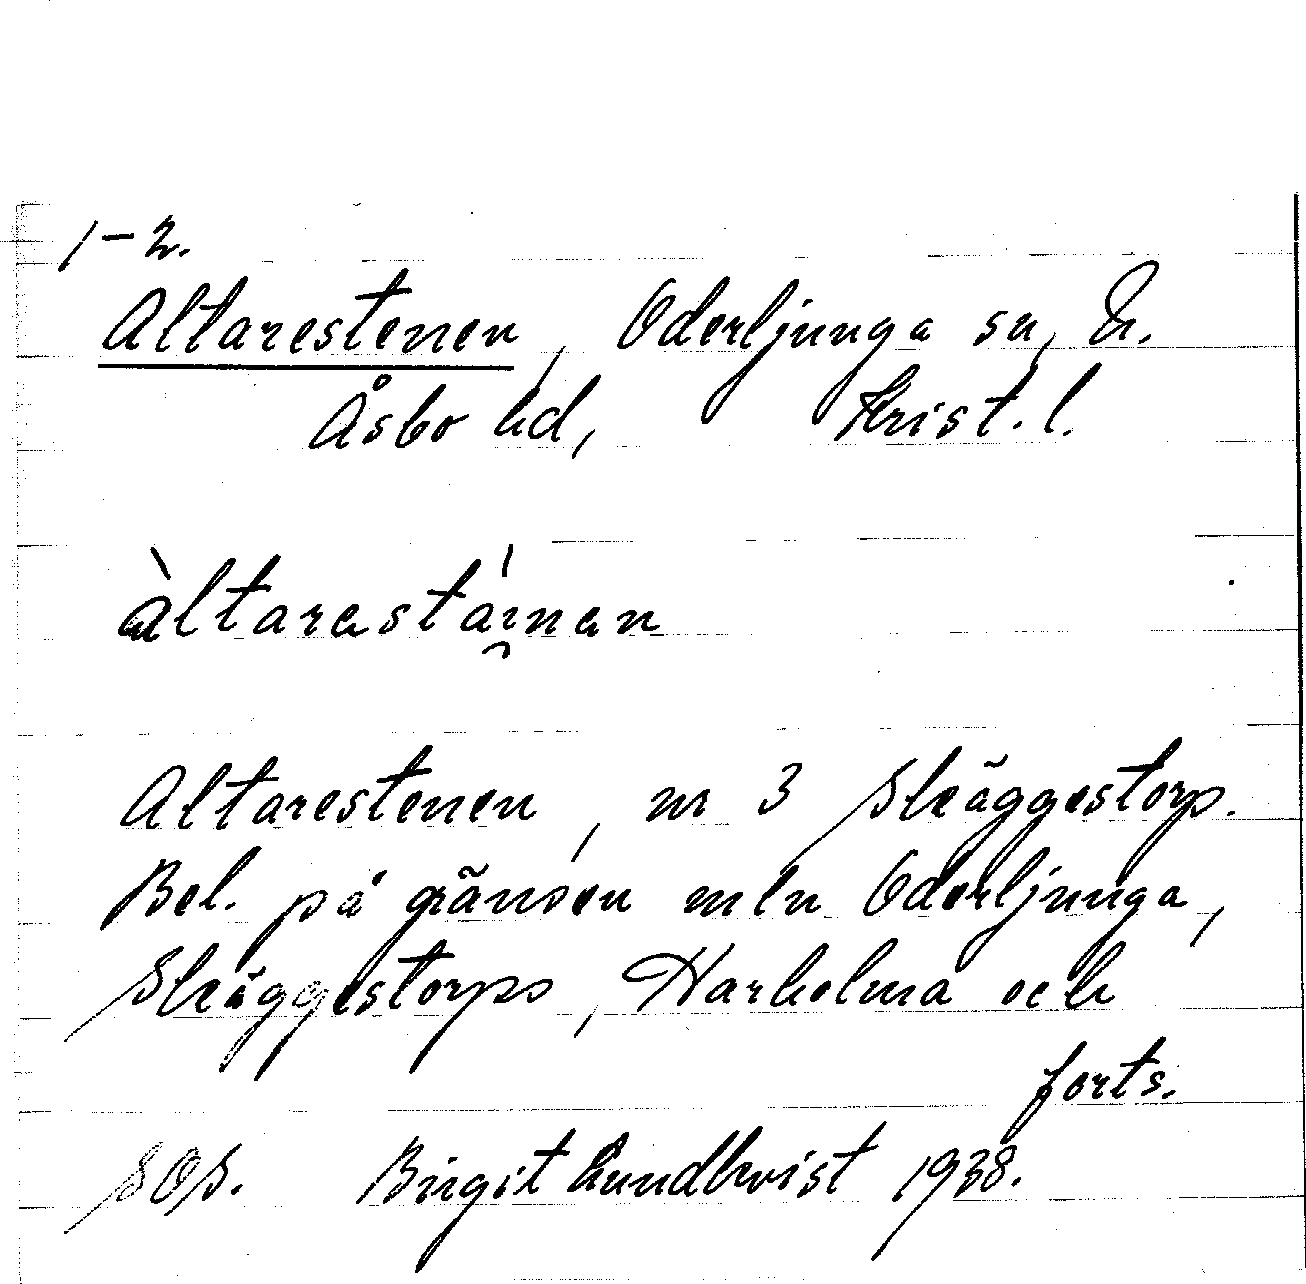 1-2.
Altarestenen, Oderljunga sn, N.
Åsbo hd, Krist. l.
àltarastáinan
Altarestenen, nr 3 Skräggestorp.
Bel. på gränsen mln Oderljunga,
Skräggestorps, Harholma och
forts.
SOS. Birgit Lundkvist 1938.